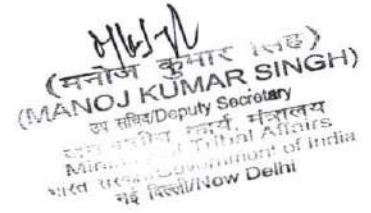 (मनोज कुमार सिंह)
(MANOJ KUMAR SINGH)
उप सचिव/Deputy Secretary
मंत्रालय
Tribal Affairs
भारत सरकार/Government of India
नई दिल्ली/New Delhi